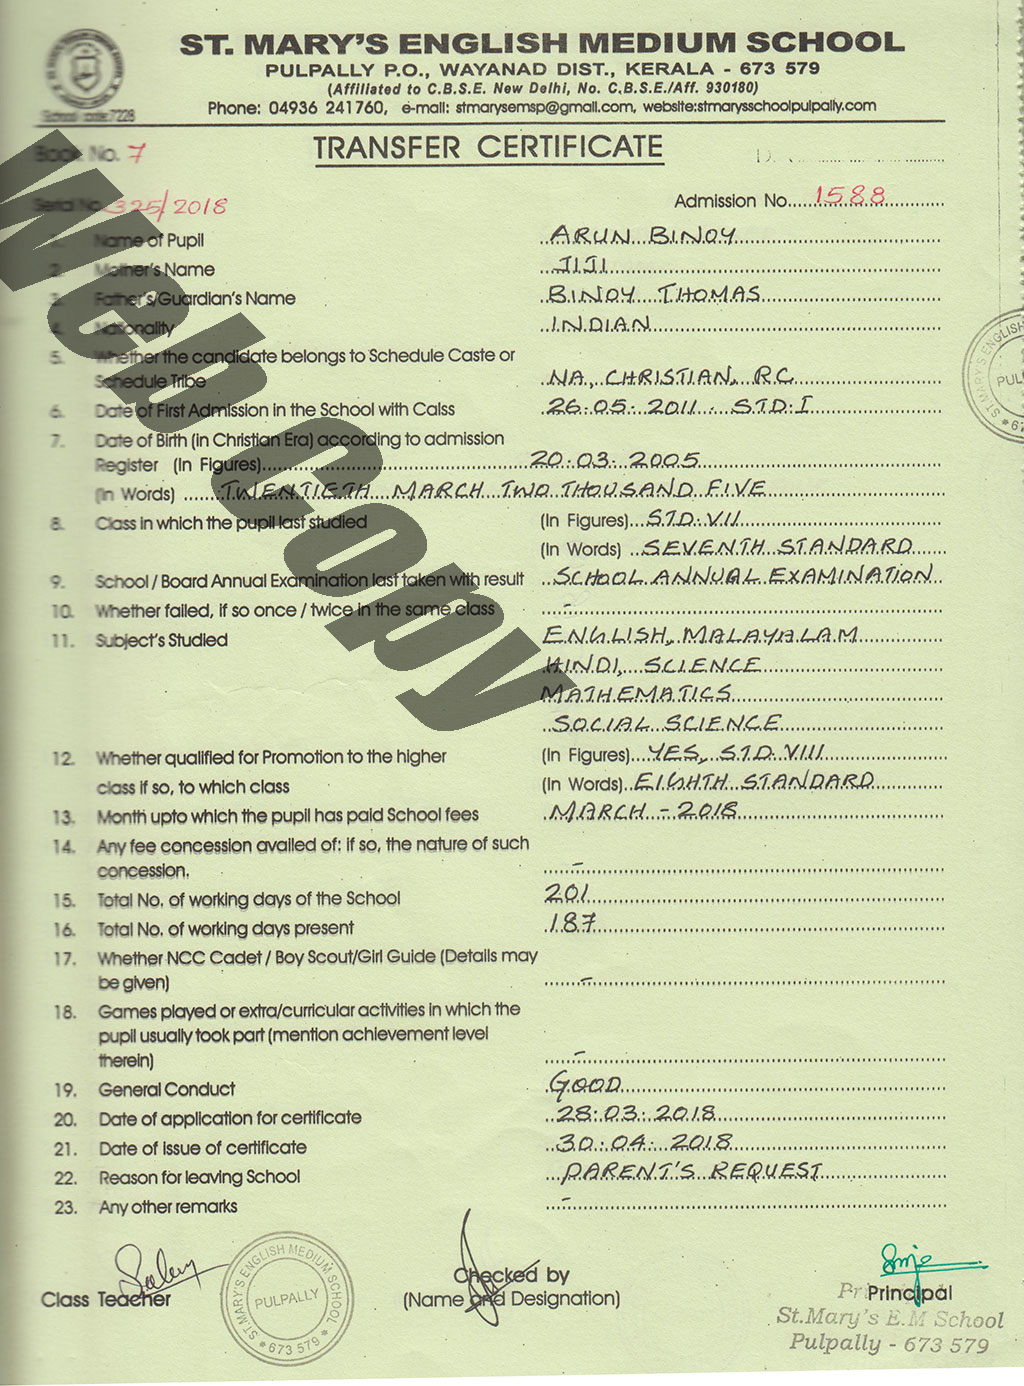 ST. MARY'S ENGLISH MEDIUM SCHOOL
PULPALLY P.O., WAYANAD DIST., KERALA - 673 579
(Affiliated to C.B.S.E. New Delhi, No. C.B.S.E./Aff. 930180)
School code:7228 Phone: 04936 241760, e-mail: stmarysemsp@gmail.com, website:stmarysschoolpulpally.com
TRANSFER CERTIFICATE
Book No. 7
Serial No. 325/2018 Admission No. 1588
1. Name of Pupil ARUN BINOY
2. Mother's Name JIJI
3. Father's/Guardian's Name BINOY THOMAS
4. Nationality INDIAN
5. Whether the candidate belongs to Schedule Caste or
Schedule Tribe NA, CHRISTIAN, RC
6. Date of First Admission in the School with Calss 26.05.2011. STD.I
7. Date of Birth (in Christian Era) according to admission
Register (In Figures) 20.03.2005
(In Words) TWENTIETH MARCH TWO THOUSAND FIVE
8. Class in which the pupil last studied (In Figures) STD.VII
(In Words) SEVENTH STANDARD
9. School / Board Annual Examination last taken with result SCHOOL ANNUAL EXAMINATION
10. Whether failed, if so once / twice in the same class -
11. Subject's Studied ENGLISH, MALAYALAM
HINDI, SCIENCE
MATHEMATICS
SOCIAL SCIENCE
12. Whether qualified for Promotion to the higher (In Figures) YES, STD VIII
class if so, to which class (In Words) EIGHTH STANDARD
13. Month upto which the pupil has paid School fees MARCH - 2018
14. Any fee concession availed of: if so, the nature of such
concession. -
15. Total No. of working days of the School 201
16. Total No. of working days present 187
17. Whether NCC Cadet / Boy Scout/Girl Guide (Details may
be given) -
18. Games played or extra/curricular activities in which the
pupil usually took part (mention achievement level
therein) -
19. General Conduct GOOD
20. Date of application for certificate 28.03.2018
21. Date of issue of certificate 30.04.2018
22. Reason for leaving School PARENT'S REQUEST
23. Any other remarks -
Class Teacher
ST.MARY'S ENGLISH MEDIUM SCHOOL
PULPALLY
673 579
Checked by
(Name and Designation)
Principal
St.Mary's E.M School
Pulpally - 673 579
Web Copy
ST.MARY'S ENGLISH
PUL